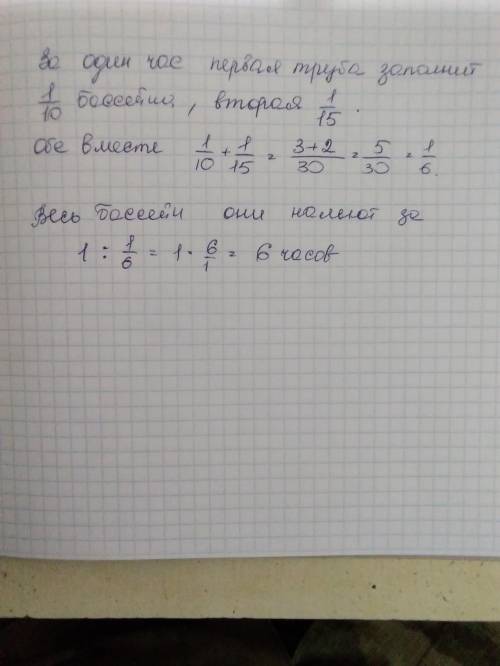 За один час первая труба заполнит
1/10 бассейна, вторая 1/15.
Обе вместе 1/10 + 1/15 = 3+2/30 = 5/30 = 1/6.
Весь бассейн они нальют за
1 : 1/6 = 1 · 6/1 = 6 часов